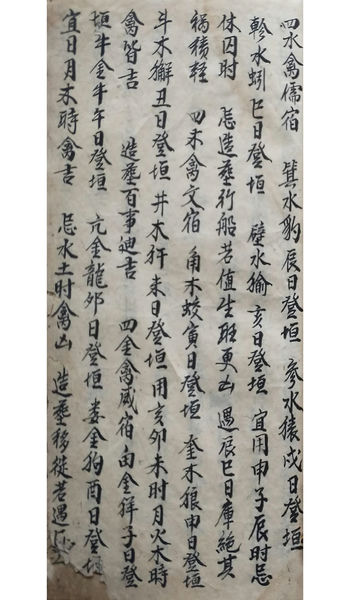 四水禽儒宿 箕水豹辰日登垣 參水猿戌日登垣
軫水蚓巳日登垣 壁水㺄亥日登垣 宜用申子辰时忌
休囚时 忌造塟行船若值生旺更凶 遇辰巳日庫絕其
祸積轻 四木禽文宿 角木蛟寅日登垣 奎木狼申日登垣
斗木獬丑日登垣 井木犴未日登垣 用亥卯未时月火木時
禽皆吉 造塟百事迪吉 四金禽咸宿 由金羊子日登
垣牛金牛午日登垣 亢金龍夘日登垣 娄金狗酉日登垣
宜日月木時禽吉 忌水土时禽凶 造塟移徙若遇